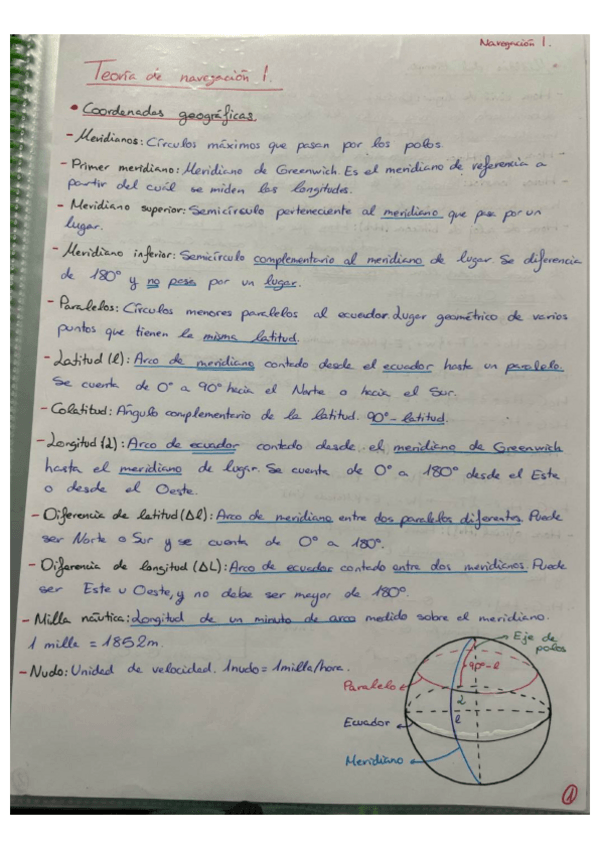 Navegación 1.
Teoría de navegación 1.
• Coordenadas geográficas.
- Meridianos: Círculos máximos que pasan por los polos.
- Primer meridiano: Meridiano de Greenwich. Es el meridiano de referencia a
partir del cuál se miden las longitudes.
- Meridiano superior: Semicírculo perteneciente al meridiano que pasa por un
lugar.
- Meridiano inferior: Semicírculo complementario al meridiano de lugar. Se diferencia
de 180° y no pasa por un lugar.
- Paralelos: Círculos menores paralelos al ecuador. Lugar geométrico de varios
puntos que tienen la misma latitud.
- Latitud (l): Arco de meridiano contado desde el ecuador hasta un paralelo.
Se cuenta de 0° a 90° hacia el Norte o hacia el Sur.
- Colatitud: Ángulo complementario de la latitud. 90° - latitud.
- Longitud (L): Arco de ecuador contado desde el meridiano de Greenwich
hasta el meridiano de lugar. Se cuenta de 0° a 180° desde el Este
o desde el Oeste.
- Diferencia de latitud (Δl): Arco de meridiano entre dos paralelos diferentes. Puede
ser Norte o Sur y se cuenta de 0° a 180°.
- Diferencia de longitud (ΔL): Arco de ecuador contado entre dos meridianos. Puede
ser Este u Oeste, y no debe ser mayor de 180°.
- Milla náutica: Longitud de un minuto de arco medido sobre el meridiano.
1 milla = 1852m.
- Nudo: Unidad de velocidad. 1 nudo = 1 milla/hora.
Eje de
polos
90° - l
Paralelo
L
l
Ecuador
Meridiano
1